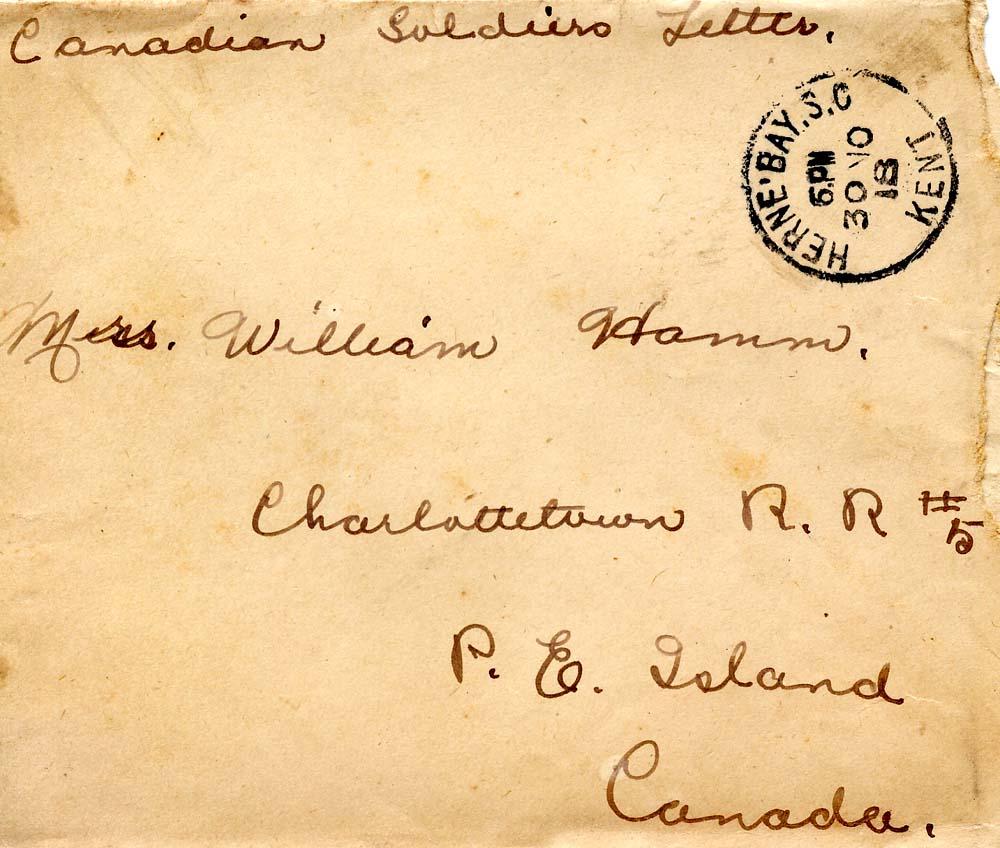 Canadian Soldiers Letter.
HERNE BAY.S.O
KENT
6.PM
30 NO
18
Mrs. William Hamm.
Charlottetown R. R #5
P. E. Island
Canada.